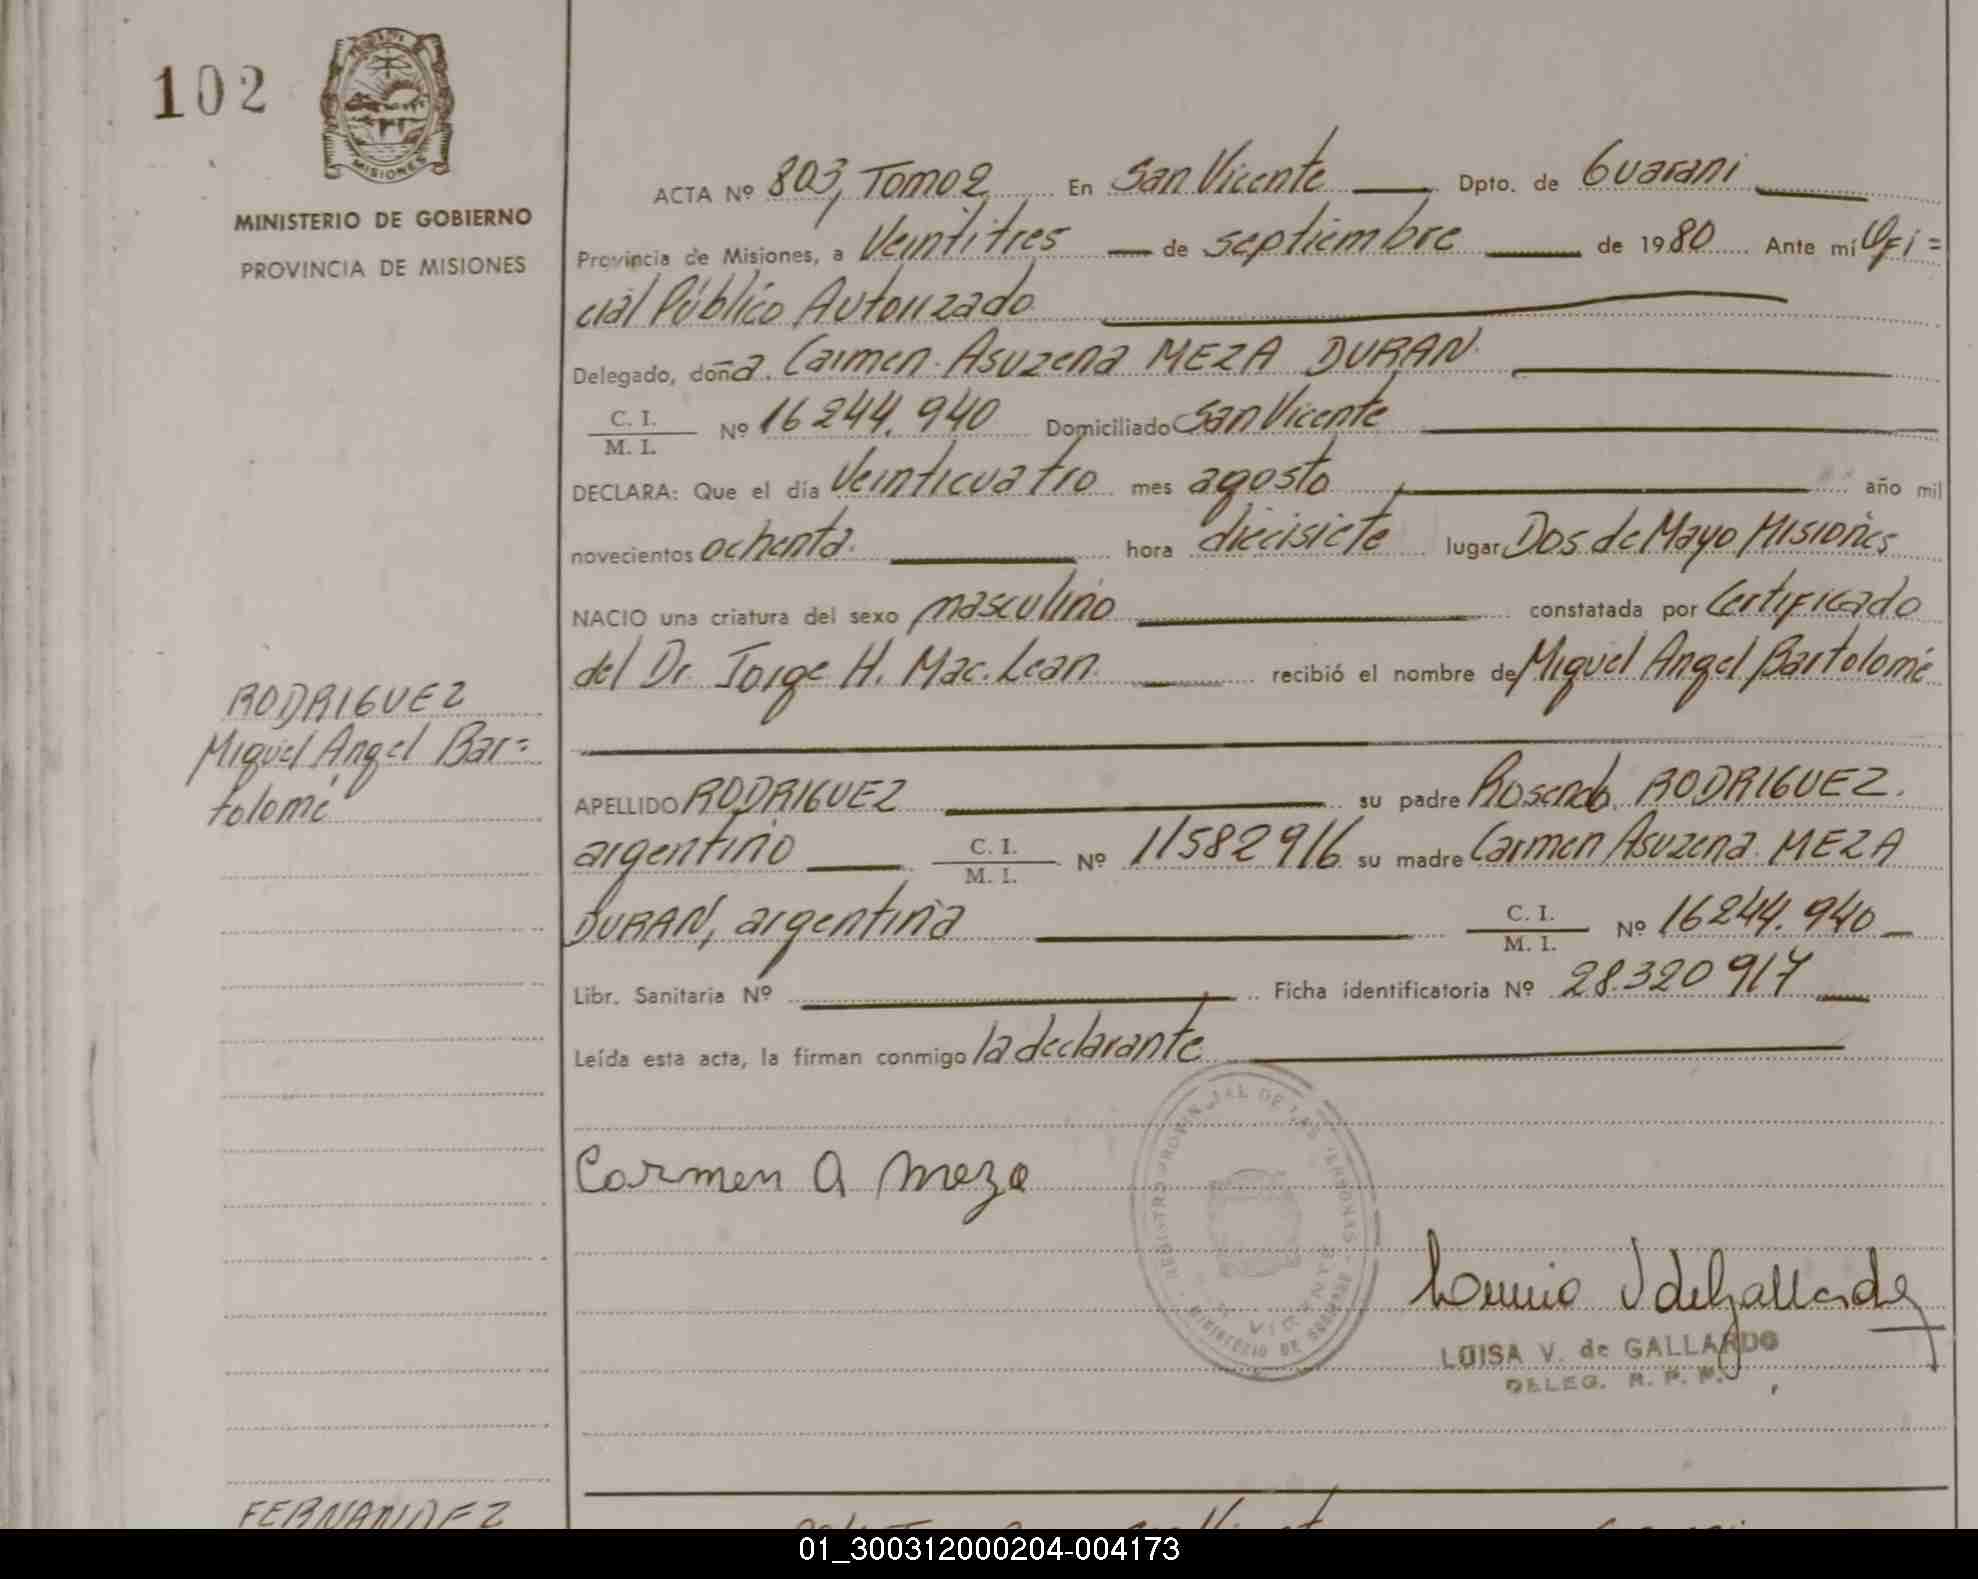 102
MISIONES
MINISTERIO DE GOBIERNO
PROVINCIA DE MISIONES
RODRIGUEZ
Miguel Angel Bar=
tolomé
FERNANDEZ
ACTA Nº 803, Tomo 2 En San Vicente Dpto. de Guarani
Provincia de Misiones, a Veintitres de septiembre de 1980 Ante mí Ofi=
cial Público Autorizado
Delegado, doña. Carmen Asuzena MEZA DURAN
C. I.
M. I. Nº 16244.940 Domiciliado San Vicente
DECLARA: Que el día Veinticuatro mes agosto año mil
novecientos ochenta hora diecisiete lugar Dos de Mayo Misiones
NACIO una criatura del sexo masculino constatada por Certificado
del Dr. Jorge H. Mac. Lean recibió el nombre de Miguel Angel Bartolomé
APELLIDO RODRIGUEZ su padre Rosendo RODRIGUEZ.
argentino C. I.
M. I. Nº 11582916 su madre Carmen Asuzena MEZA
DURAN, argentina C. I.
M. I. Nº 16244.940
Libr. Sanitaria Nº Ficha identificatoria Nº 28.320917
Leída esta acta, la firman conmigo la declarante
Carmen A Meza
REGISTRO PROVINCIAL DE LAS PERSONAS
MINISTERIO DE GOBIERNO
VICENTE
V de Gallardo
LUISA V. de GALLARDO
DELEG. R. P. P.
01_300312000204-004173